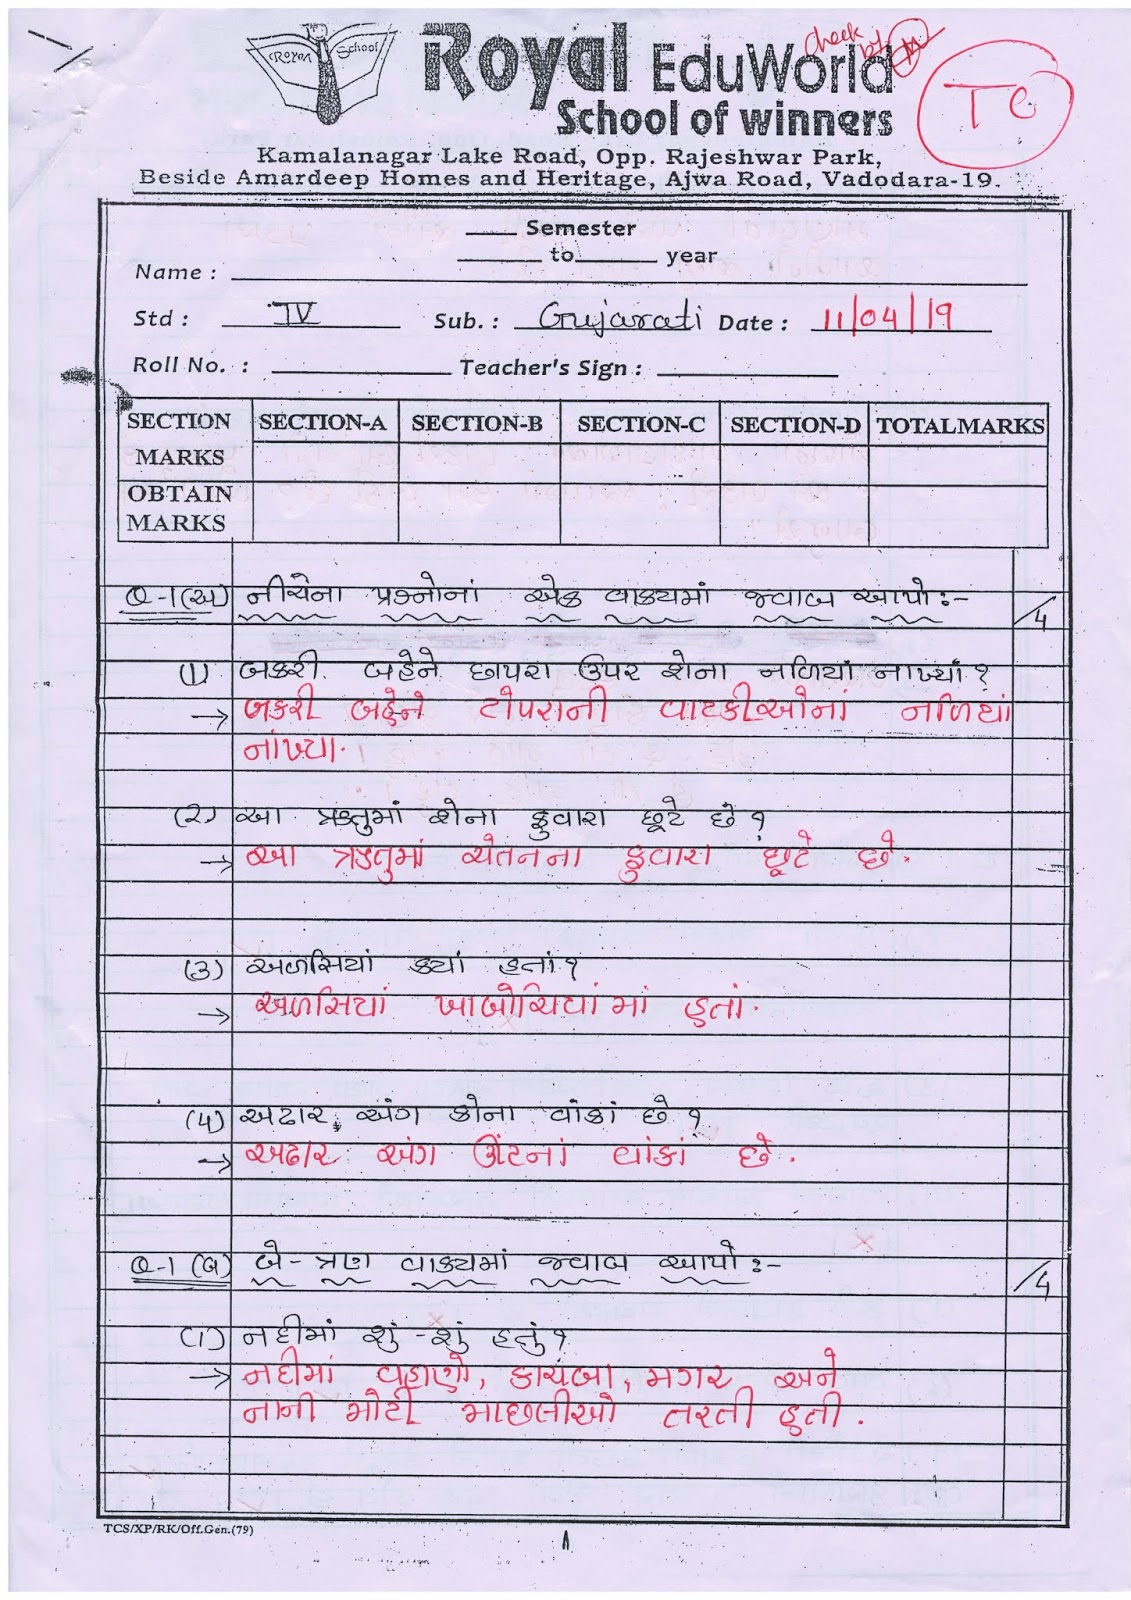 Royal School
Royal EduWorld
check by
School of winners
Kamalanagar Lake Road, Opp. Rajeshwar Park,
Beside Amardeep Homes and Heritage, Ajwa Road, Vadodara-19.
____ Semester
______ to______ year
Name :
Std : IV Sub. : Gujarati Date : 11/04/19
Roll No. : Teacher's Sign :
SECTION MARKS SECTION-A SECTION-B SECTION-C SECTION-D TOTALMARKS
OBTAIN MARKS
Q-1(અ) નીચેના પ્રશ્નોનાં એક વાક્યમાં જવાબ આપો:- /4
(1) બકરી બહેને છાપરા ઉપર શેના નળિયાં નાખ્યાં ?
→ બકરી બહેને ટોપરાની વાટકીઓનાં નળિયાં
નાંખ્યા.
(૨) આ ઋતુમાં શેના ફુવારા છૂટે છે ?
→ આ ઋતુમાં ચેતનના ફુવારા છૂટે છે.
(૩) અળસિયાં ક્યાં હતાં ?
→ અળસિયાં ખાબોચિયાંમાં હતાં.
(૪) અઢાર અંગ કોના વાંકાં છે ?
→ અઢાર અંગ ઊંટનાં વાંકાં છે.
Q-1 (બ) બે-ત્રણ વાક્યમાં જવાબ આપો:- /4
(૧) નદીમાં શું-શું હતું ?
→ નદીમાં વહાણો, કાચબા, મગર અને
નાની મોટી માછલીઓ તરતી હતી.
TCS/XP/RK/Off.Gen.(79)